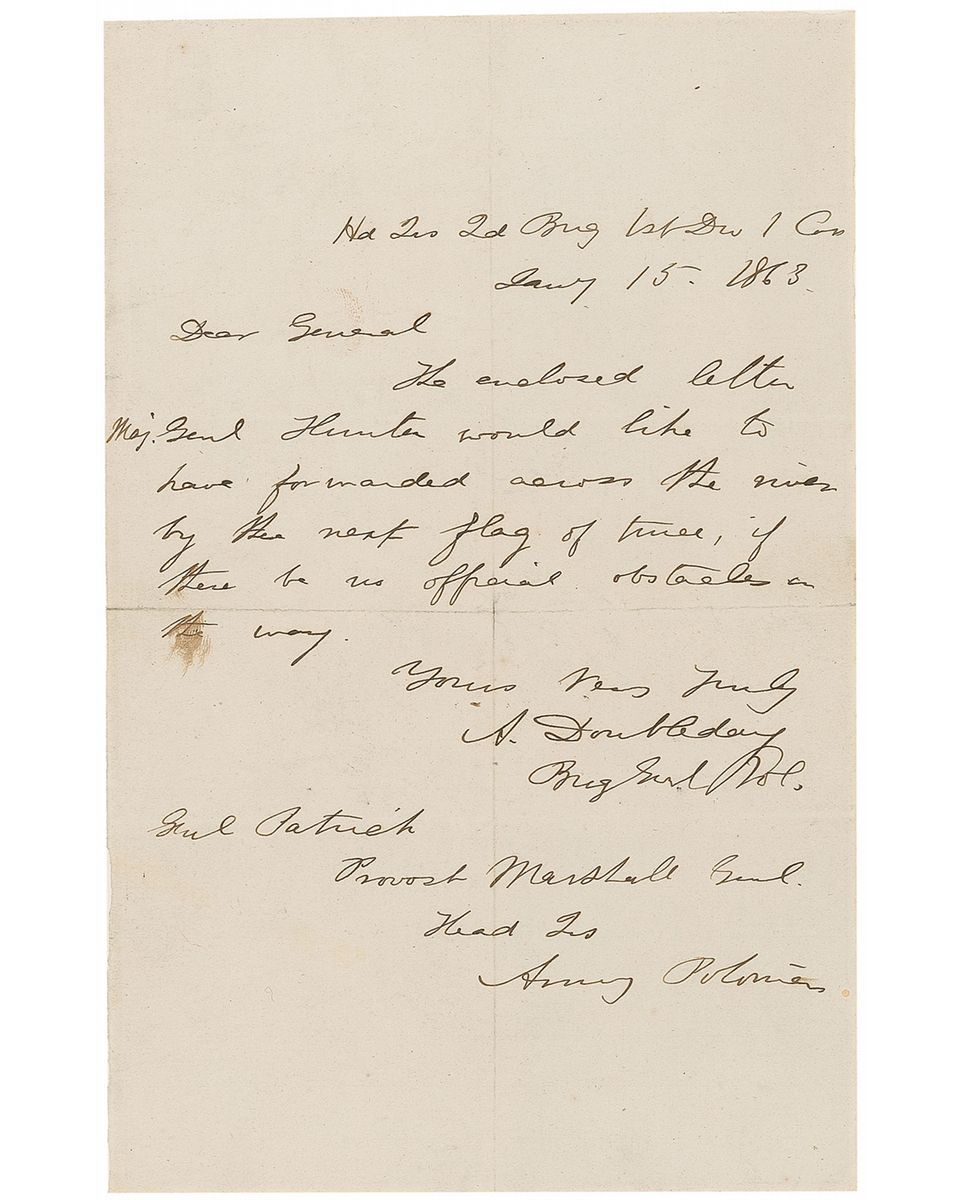 Hd Qrs 2d Brig 1st Div 1 Cors
Jany 15. 1863.
Dear General
The enclosed letter
Maj. Genl Hunter would like to
have forwarded across the river
by the next flag of truce, if
there be no official obstacles in
the way.
Yours Very Truly
A. Doubleday
Brig Genl Vol.
Genl Patrick
Provost Marshall Genl.
Head Qrs
Army Potomac